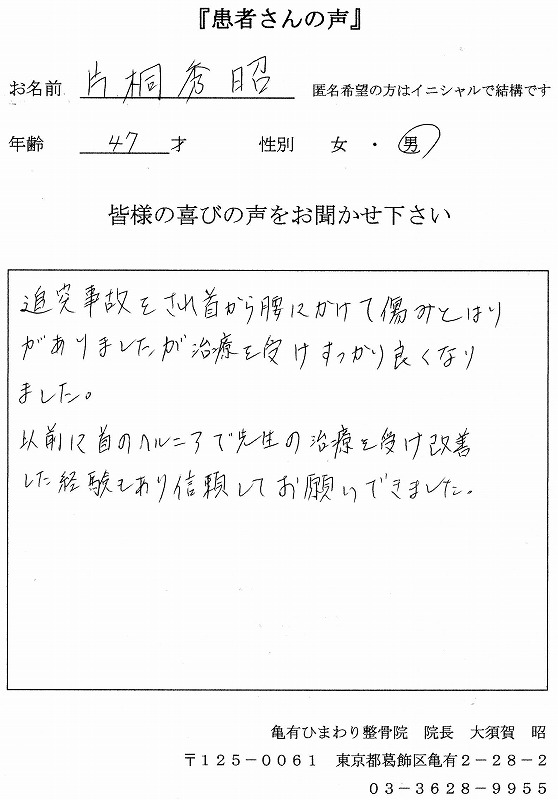 『患者さんの声』
お名前 片桐秀昭 匿名希望の方はイニシャルで結構です
年齢 47 才 性別 女 ・ 男
皆様の喜びの声をお聞かせ下さい
追突事故をされ首から腰にかけて傷みとはり
がありましたが治療を受けすっかり良くなり
ました。
以前に首のヘルニアで先生の治療を受け改善
した経験もあり信頼してお願いできました。
亀有ひまわり整骨院 院長 大須賀 昭
〒125-0061 東京都葛飾区亀有2-28-2
03-3628-9955